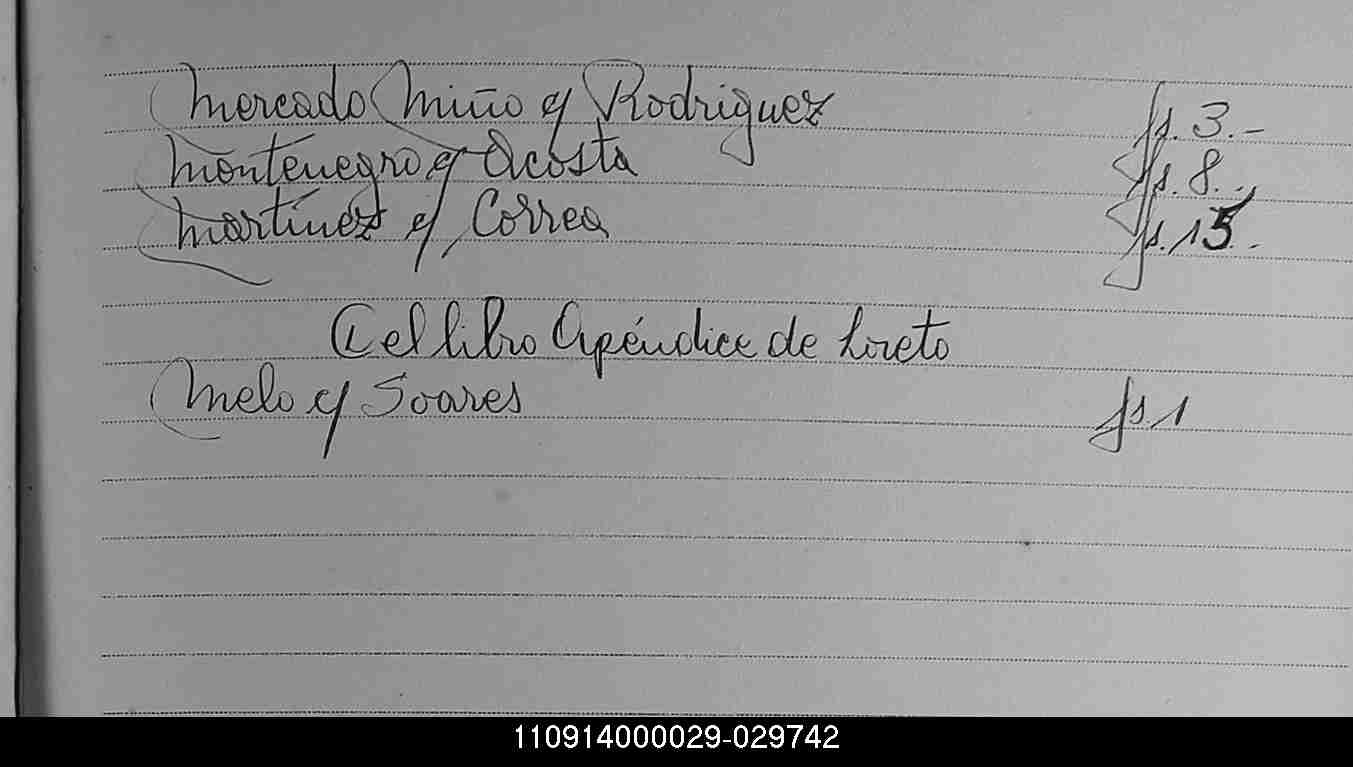 Mercado Miño y Rodriguez fs. 3.-
Montenegro y Acosta fs. 8.-
Martinez y Correa fs. 15.-
Del libro Apéndice de Loreto
Melo y Soares fs. 1
110914000029-029742